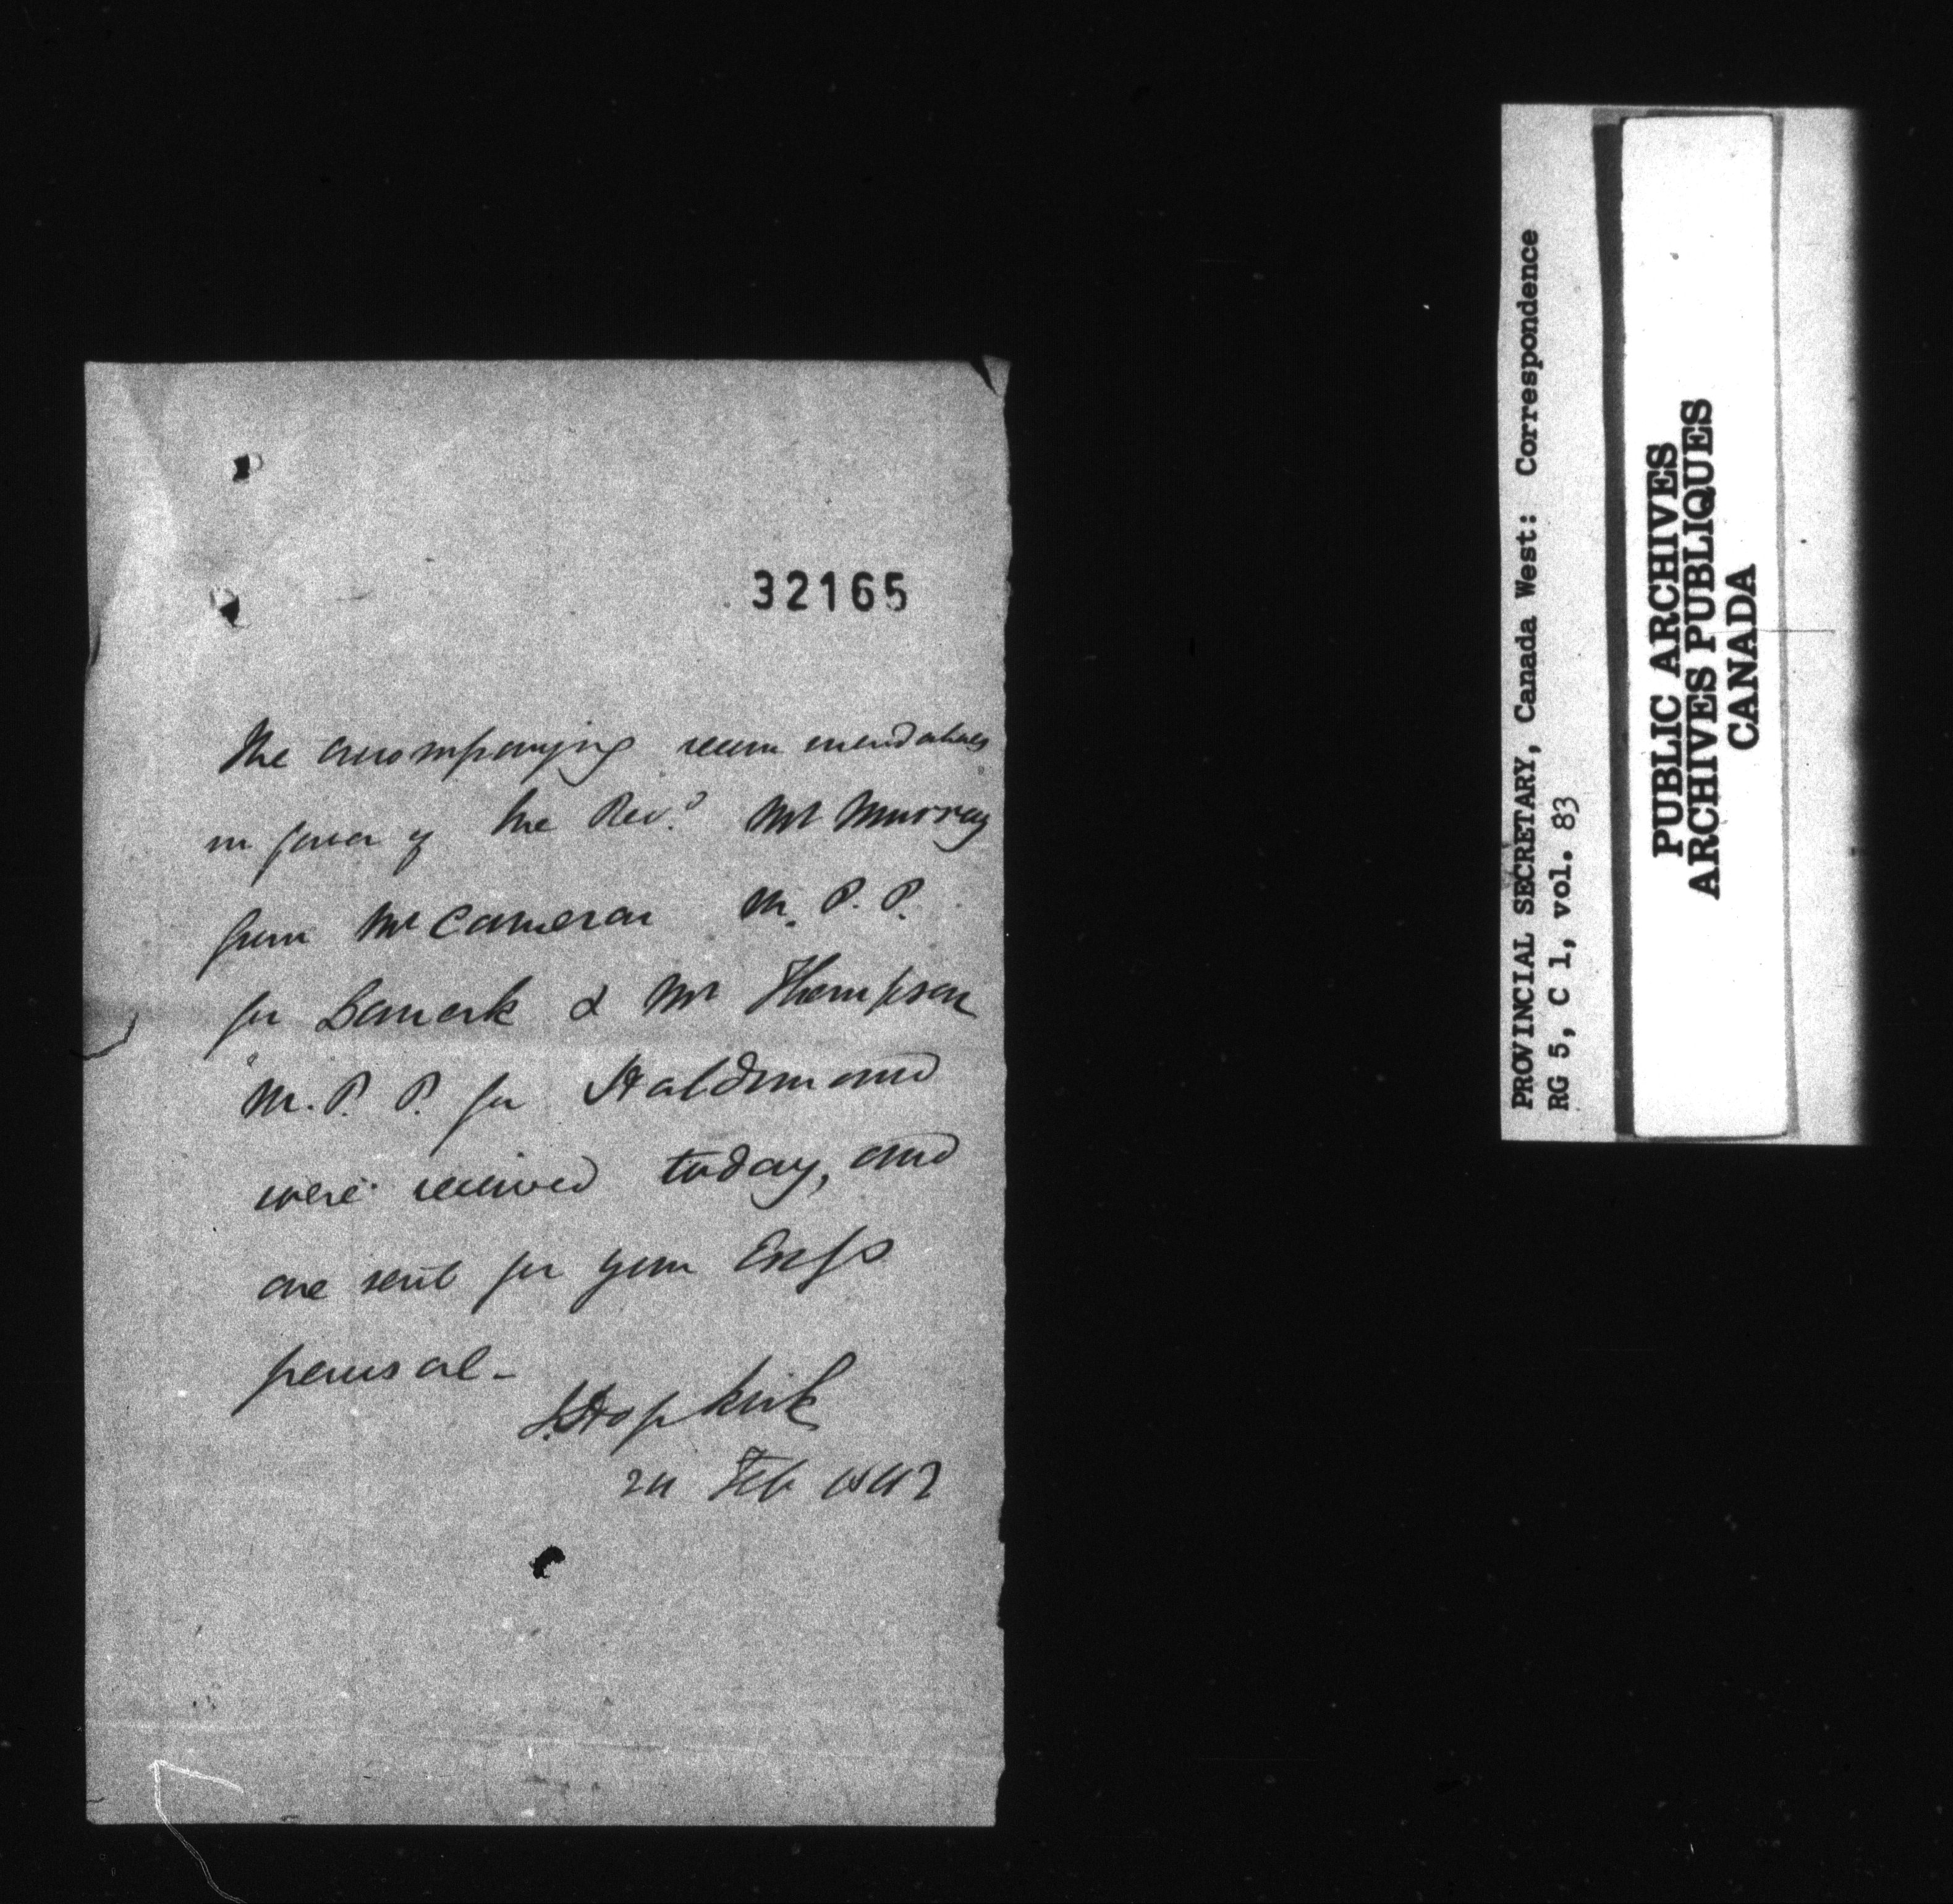 32165
The accompanying recommendations
in favor of the Revd. Mr Murray
from Mr Cameron M. P. P.
for Lanark & Mr Thompson
M. P. P. for Haldimand
were received today, and
are sent for your Excys
perusal -
J. Hopkirk
24 Feb 1842
PROVINCIAL SECRETARY, Canada West: Correspondence
RG 5, C 1, vol. 83
PUBLIC ARCHIVES
ARCHIVES PUBLIQUES
CANADA